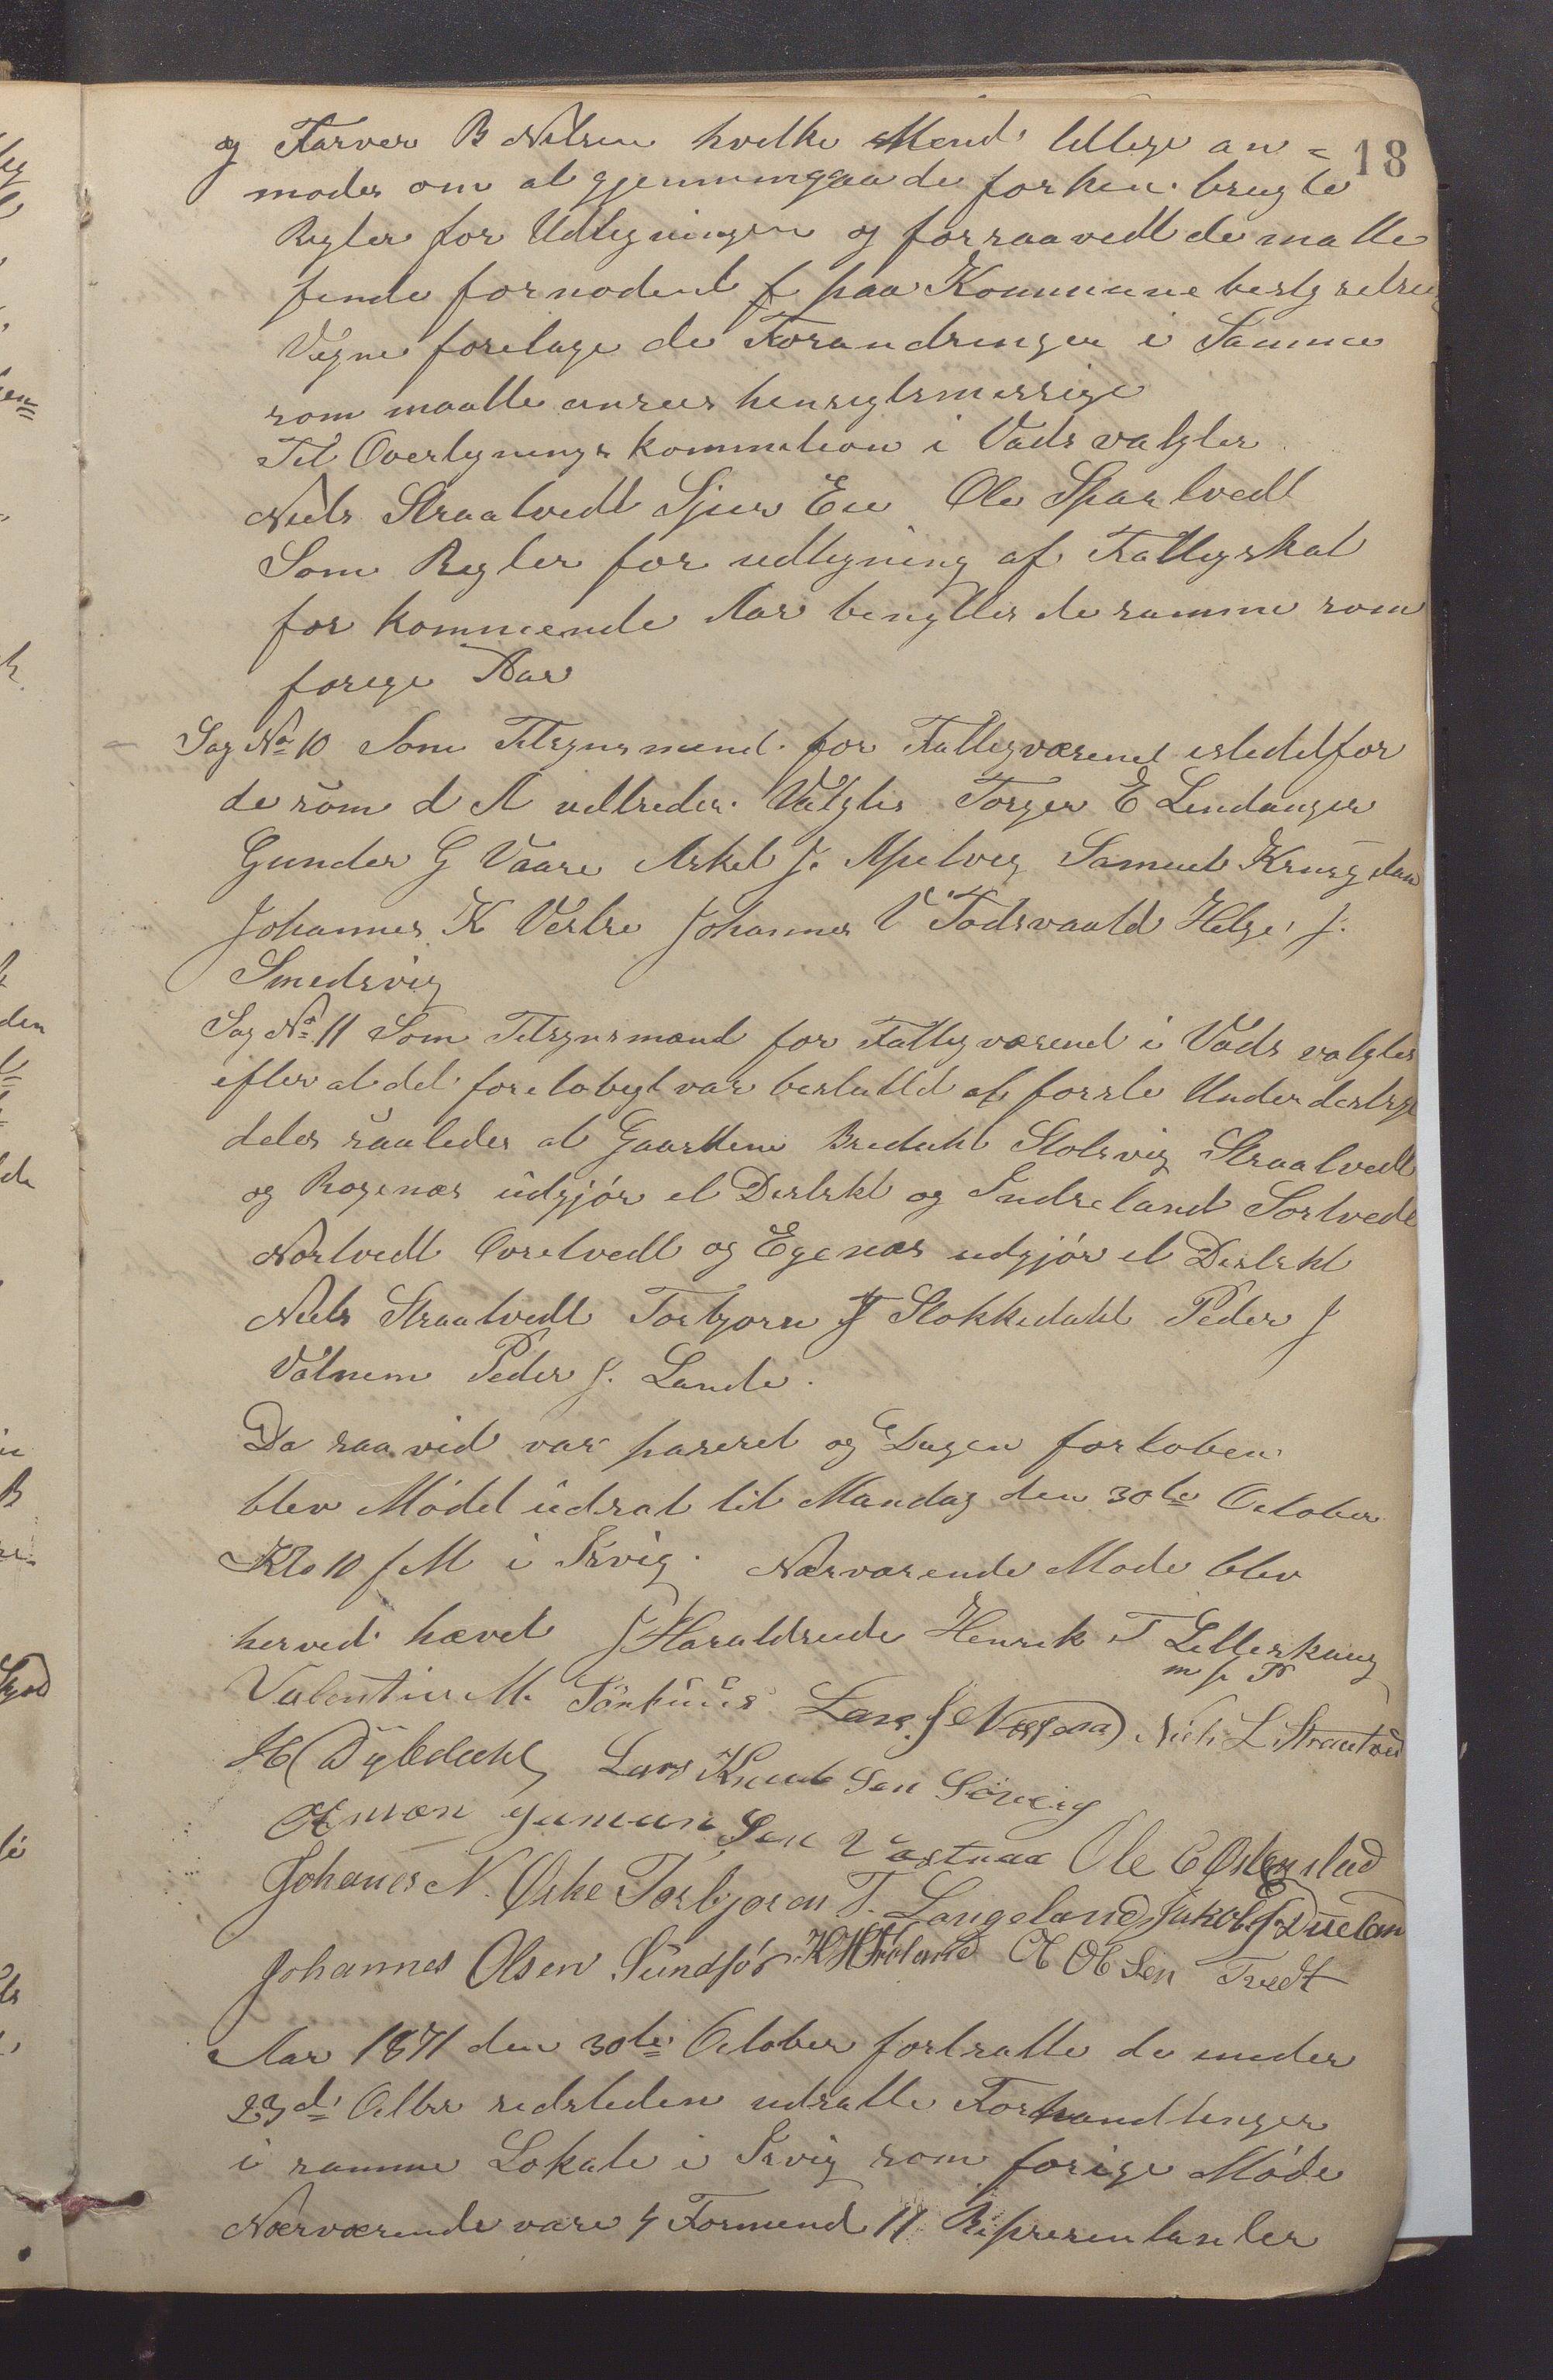 18
og Farver B Nilsen hvilke Mend tillige an=
modes om at gjennemgaa de forhen brugte
Regler for Udligningen og forsaavedt de matte
finde fornodent paa Kommunebestyrelsens
Vegne foretage de Forandringer i Samme
som maatte ansees hensigtsmessige
Til Overligningskommition i Vads valgtes
Niels Straatvedt Sjur Eie Ole Spartvedt
Som Regler for udligning af Fattigskat
for kommende Aar benyttes de samme som
forige Aar
Sag No 10 Som Tilsynsmend for Fattigvæsenet istedetfor
de som d A udtreder Valgtes Torger E Lindanger
Gunder G Vaare Askel J. Apelvig Samuel
Johannes K Vestre Johannes V Todsvaald Helge J.
Smedsvig
Sag No 11 Som Tilsynsmænd for Fattigvæsenet i Vads valgtes
efter at det forelobigt var besluttet at forste Underdestrigt
deles saaledes at Gaardene Stolsvig Straatvedt
og Rogenæs udgjør et Destrkt og Indreland Sortvedt
Nortvedt Ovretvedt og Egenæs udgjør et Destrkt
Niels Straatvedt Torbjorn J Stokkedahl Peder J
Valnem Peder J. Lande.
Da saa vid var paseret og Dagen forloben
blev Mødet udsat til Mandag den 30te October
Klo 10 f M i Ørvig. Nærværende Mode blev
herved hævet J Haraldseide Henrik T Litleskoug
m p P
Valentin M. Lars J Niels L Straatved
Lars Knutsen
Gumunsen Vastraa Ole E
Johanes N. Øike Torbjoren T. Langeland Jakob J
Johannes Olsen Sundfør Tvedt
Aar 1871 den 30te October fortsatte de under
23de Octbr sidsleden udsatte Forhandlinger
i samme Lokale i Ørvig som forige Møde
Nærværende vare 4 Formend 11 Representanter